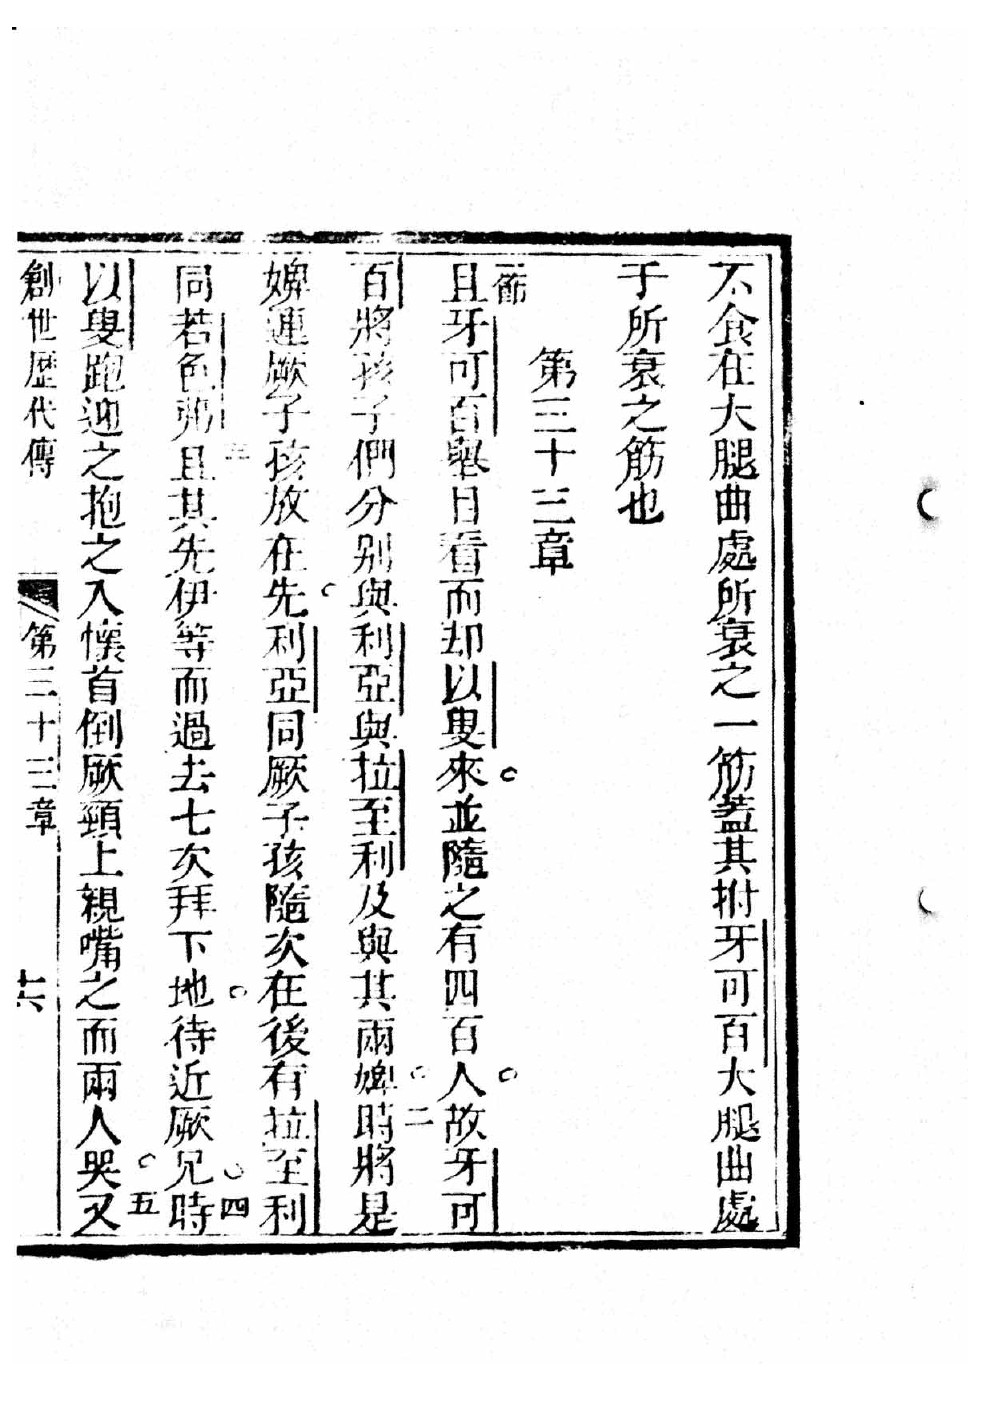 不食在大腿曲處所衰之一筋蓋其拊牙可百大腿曲處
于所衰之筋也
第三十三章
一節且牙可百舉目看而却以叟來並隨之有四百人故牙可
百將孩子們分别與利亞與拉至利及與其兩婢二時將是
婢連厥子孩放在先利亞同厥子孩隨次在後有拉至利
同若色弗三且其先伊等而過去七次拜下地待近厥兄四時
以叟跑迎之抱之入懷首倒厥頸上親嘴之而兩人哭五又
創世歷代傳 第三十三章 六